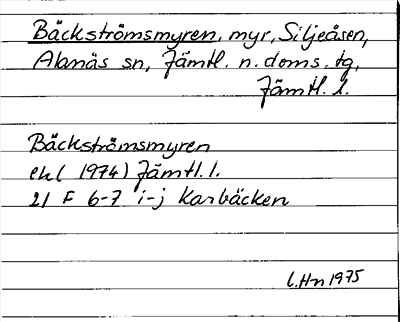 Bäckströmsmyren, myr, Siljeåsen,
Alanäs sn, Jämtl. n. doms. tg,
Jämtl. l.
Bäckströmsmyren
ek( 1974) Jämtl. l.
21 F 6-7 i-j Karbäcken
L.Hn 1975